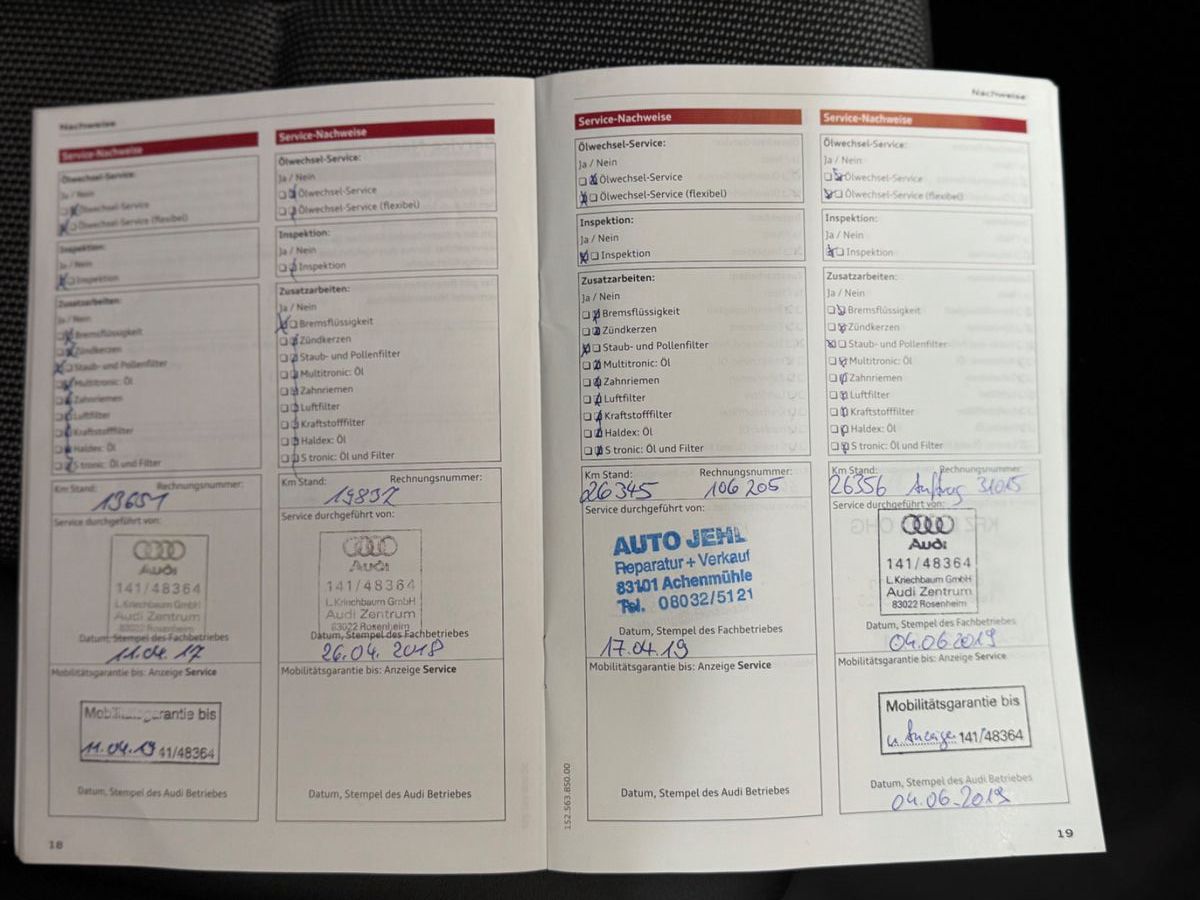 Nachweise
Service-Nachweise
Ölwechsel-Service:
Ja / Nein
Ölwechsel-Service
Ölwechsel-Service (flexibel)
Inspektion:
Ja / Nein
Inspektion
Zusatzarbeiten:
Ja / Nein
Bremsflüssigkeit
Zündkerzen
Staub- und Pollenfilter
Multitronic: Öl
Zahnriemen
Luftfilter
Kraftstofffilter
Haldex: Öl
S tronic: Öl und Filter
Km Stand: Rechnungsnummer:
13651
Service durchgeführt von:
Audi
141/48364
L.Kriechbaum GmbH
Audi Zentrum
83022 Rosenheim
Datum, Stempel des Fachbetriebes
11.04.17
Mobilitätsgarantie bis: Anzeige Service
Mobilitätsgarantie bis
11.04.19 41/48364
Datum, Stempel des Audi Betriebes
18
Service-Nachweise
Ölwechsel-Service:
Ja / Nein
Ölwechsel-Service
Ölwechsel-Service (flexibel)
Inspektion:
Ja / Nein
Inspektion
Zusatzarbeiten:
Ja / Nein
Bremsflüssigkeit
Zündkerzen
Staub- und Pollenfilter
Multitronic: Öl
Zahnriemen
Luftfilter
Kraftstofffilter
Haldex: Öl
S tronic: Öl und Filter
Km Stand: Rechnungsnummer:
19832
Service durchgeführt von:
Audi
141/48364
L.Kriechbaum GmbH
Audi Zentrum
83022 Rosenheim
Datum, Stempel des Fachbetriebes
26.04.2018
Mobilitätsgarantie bis: Anzeige Service
Datum, Stempel des Audi Betriebes
152.563.850.00
Service-Nachweise
Ölwechsel-Service:
Ja / Nein
Ölwechsel-Service
Ölwechsel-Service (flexibel)
Inspektion:
Ja / Nein
Inspektion
Zusatzarbeiten:
Ja / Nein
Bremsflüssigkeit
Zündkerzen
Staub- und Pollenfilter
Multitronic: Öl
Zahnriemen
Luftfilter
Kraftstofffilter
Haldex: Öl
S tronic: Öl und Filter
Km Stand: Rechnungsnummer:
26345 106205
Service durchgeführt von:
AUTO JEHL
Reparatur + Verkauf
83101 Achenmühle
Tel. 08032/5121
Datum, Stempel des Fachbetriebes
17.04.19
Mobilitätsgarantie bis: Anzeige Service
Datum, Stempel des Audi Betriebes
Nachweise
Service-Nachweise
Ölwechsel-Service:
Ja / Nein
Ölwechsel-Service
Ölwechsel-Service (flexibel)
Inspektion:
Ja / Nein
Inspektion
Zusatzarbeiten:
Ja / Nein
Bremsflüssigkeit
Zündkerzen
Staub- und Pollenfilter
Multitronic: Öl
Zahnriemen
Luftfilter
Kraftstofffilter
Haldex: Öl
S tronic: Öl und Filter
Km Stand: Rechnungsnummer:
26356 Auftrag 31015
Service durchgeführt von:
Audi
141/48364
L.Kriechbaum GmbH
Audi Zentrum
83022 Rosenheim
Datum, Stempel des Fachbetriebes
04.06.2019
Mobilitätsgarantie bis: Anzeige Service
Mobilitätsgarantie bis
n. Anzeige 141/48364
Datum, Stempel des Audi Betriebes
04.06.2019
19